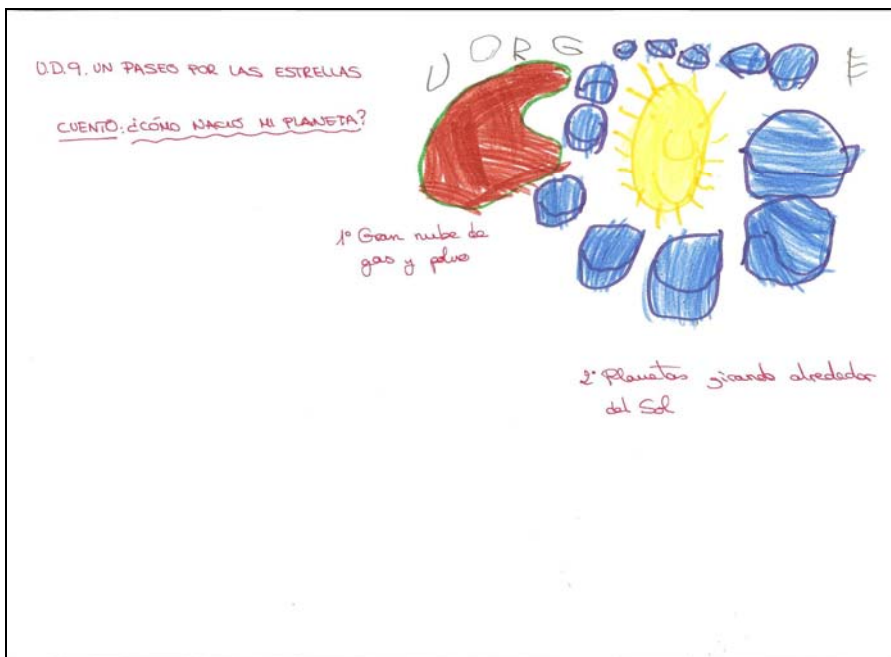 U.D.9. UN PASEO POR LAS ESTRELLAS
CUENTO: ¿CÓMO NACIÓ MI PLANETA?
J O R G E
1º Gran nube de
gas y polvo
2º Planetas girando alrededor
del Sol